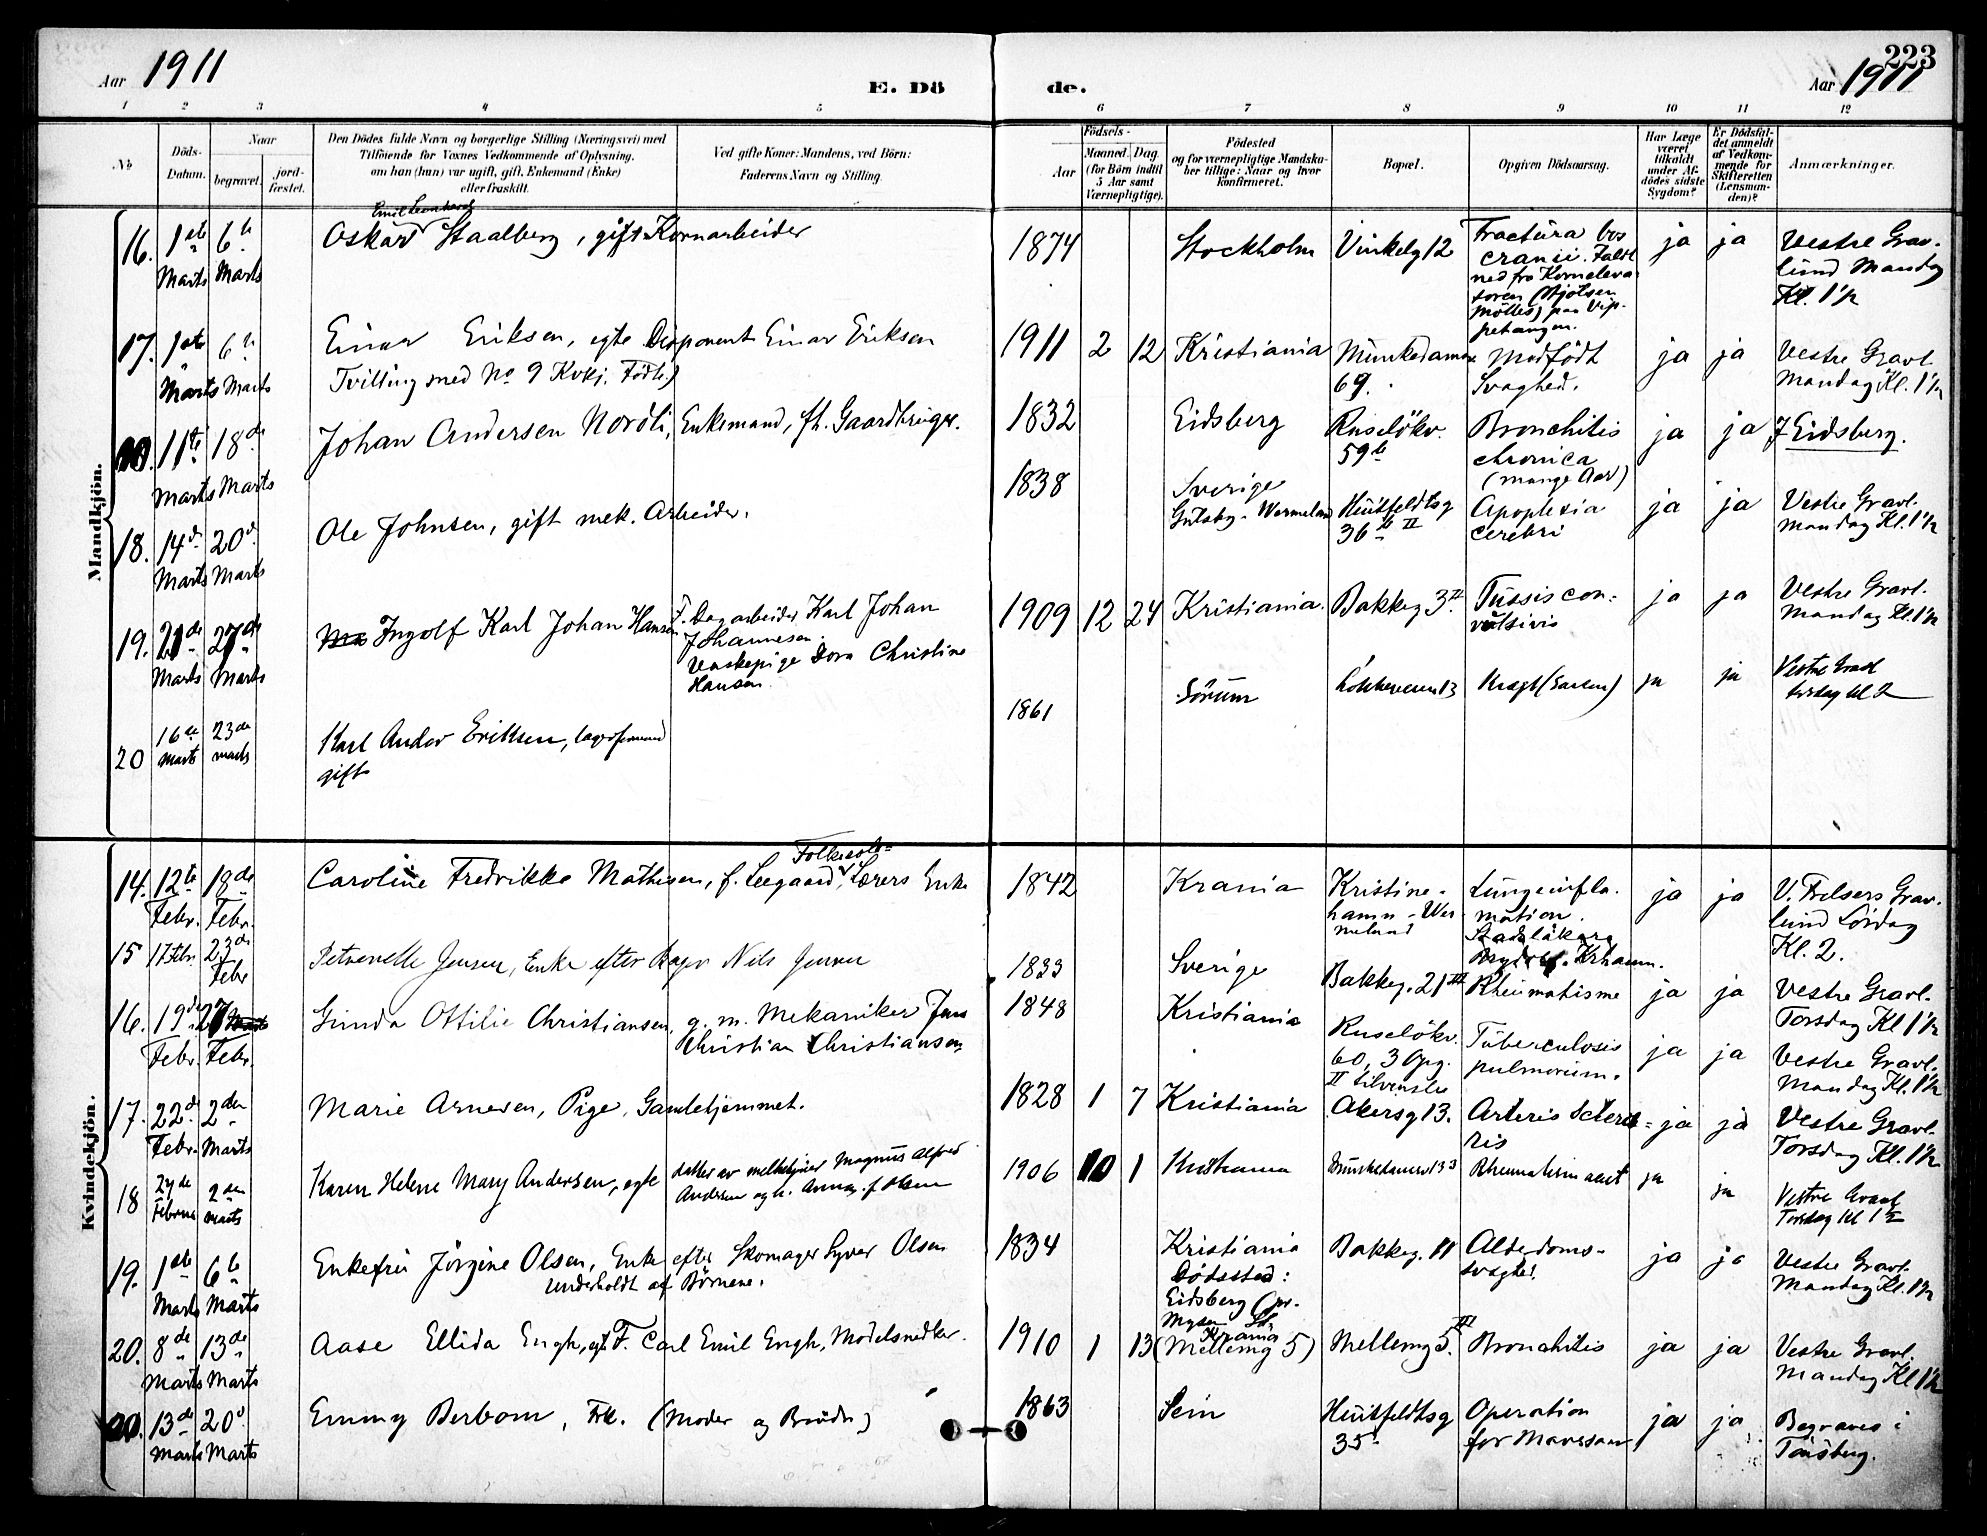 223
Aar 1911
E. Dö
de.
Aar 1911
1 2 3 4 5 6 7 8 9 10 11 12
No
Döds-
Datum.
Naar
begravet.
jord-
fæstet.
Den Dödes fulde Navn og borgerlige Stilling (Næringsvei) med
Tilföiende for Voxnes Vedkommende af Oplysning,
om han (hun) var ugift, gift, Enkemand (Enke)
eller fraskilt.
Ved gifte Koner: Mandens, ved Börn:
Faderens Navn og Stilling
Födsels-
Aar
Maaned. Dag
(for Börn indtil
5 Aar samt
Værnepligtige).
Födested
og for værnepligtige Mandska-
ber tillige: Naar og hvor
konfirmeret.
Bopæl.
Opgiven Dödsaarsag.
Har Læge
været
tilkaldt
under Af-
dödes sidste
Sygdom?
Er Dödsfal-
det anmeldt
af Vedkom-
mende for
Skifteretten
(Lensman-
den)?
Anmærkninger.
Mandkjön.
16. 1ste Marts 6te Marts
Emil Leonhard
Oskar Staalberg, gift Kornarbeider
1874 Stockholm Vinkelg 12
Fractura bos
cranii. Faldt
ned fra Korneleva-
toren
paa Vip-
petangen.
ja ja
Vestre Grav-
lund Mandag
Kl. 1½
17. 1ste Marts 6te Marts
Einar Eriksen, egte Disponent Einar Eriksen
Tvilling med No 9 Kvkj. Födte)
1911 2 12 Kristiania Munkedamsv
69.
Medfödt
Svaghed.
ja ja
Vestre Gravl.
Mandag Kl. 1½
11te Marts 18de Marts
Johan Andersen Nordli, Enkemand, fh. Gaardbruger.
1832 Eidsberg Ruselökv.
59b
Bronchitis
chronica
(mange Aar)
ja ja
Eidsberg.
18. 14de Marts 20de Marts
Ole Johnsen, gift mek. Arbeider.
1838 Sverige
Gutsby-Wermeland
Huitfeldtsg
36b II
Apoplexia
cerebri
ja ja
Vestre Gravl.
Mandag Kl. 1½
19. 21de Marts 27de Marts
Ingolf Karl Johan Hansen
F. Dagarbeider Karl Johan
Johannesen.
Vaskepige Dora Christine
Hansen.
1909 12 24 Kristiania. Bakkeg 3II.
Tussis con-
vulsivis
ja ja
Vestre Gravl.
Mandag Kl. 1½
20 16de Marts 23de Marts
Karl Andor Eriksen, lagerformand
gift
1861 Sörum Lökkeveien 13 Kræft (Sarkom) ja ja
Vestre Gravl
torsdag kl 2
Kvindekjön.
14. 12te Febr. 18de Febr.
Folkeskole-
Caroline Fredrikke Mathisen, f. Leegaard, Lærers Enke
1842 Krania Kristine-
hamn-Wer-
meland
Lungeinfla-
mation.
Stadsläkare
Krhamn.
ja ja
V. Frelsers Grav-
lund Lördag
Kl. 2.
15 17 Febr. 23de Febr
Petronelle Jensen, Enke efter Nils Jensen
1833 Sverige Bakkeg. 21III Rheumatisme ja ja
Vestre Gravl.
Torsdag Kl 1½
16. 19de Febr. 27 Febr.
Gunda Ottilie Christiansen, g. m. Mekaniker Jens
Christian Christiansen
1848 Kristiania Ruselökv.
60, 3 Opg.
II
Tuberculosis
pulmorium.
ja ja
Vestre Gravl.
Mandag Kl. 1½
17. 22de Febr. 2den Marts
Marie Arnesen, Pige, Gamlehjemmet.
1828 1 7 Kristiania Akersg 13. Arteris Sclero-
ris
ja ja
Vestre Gravl.
Torsdag Kl. 1½
18 24de Februar 2den Marts
Karen Helene Mary Andersen, egte
datter av melkekjører Magnus Alfred
Andersen og h. Anna f. Olsen
1906 10 1 Kristiania Munkedamsv 133 Rheumatism acut ja ja
Vestre Gravl
Torsdag kl 1½
19. 1ste Marts 6te Marts
Enkefru Jörgine Olsen, Enke efter Skomager Syver Olsen
underholdt af Börnene.
1834 Kristiania
Dödssted:
Eidsberg (pr.
Mysen St.
Bakkeg. 11 Alderdoms-
svaghed
ja ja
Vestre Gravl.
Mandag Kl. 1½
20. 8de Marts 13de Marts
Aase Ellida Engh, egt F. Carl Emil Engh, Modelsnedker.
1910 1 13 Krania
(Mellemg 5)
Mellemg 5.III Bronchitis ja ja
Vestre Gravl.
Mandag Kl 1½
13de Marts 20de Marts
Emmy Berbom, Frk. (Moder og Brödre)
1863 Sem Huitfeldtsg
35
Operation
for Mavesaar
ja ja
Begraves i
Tönsberg.